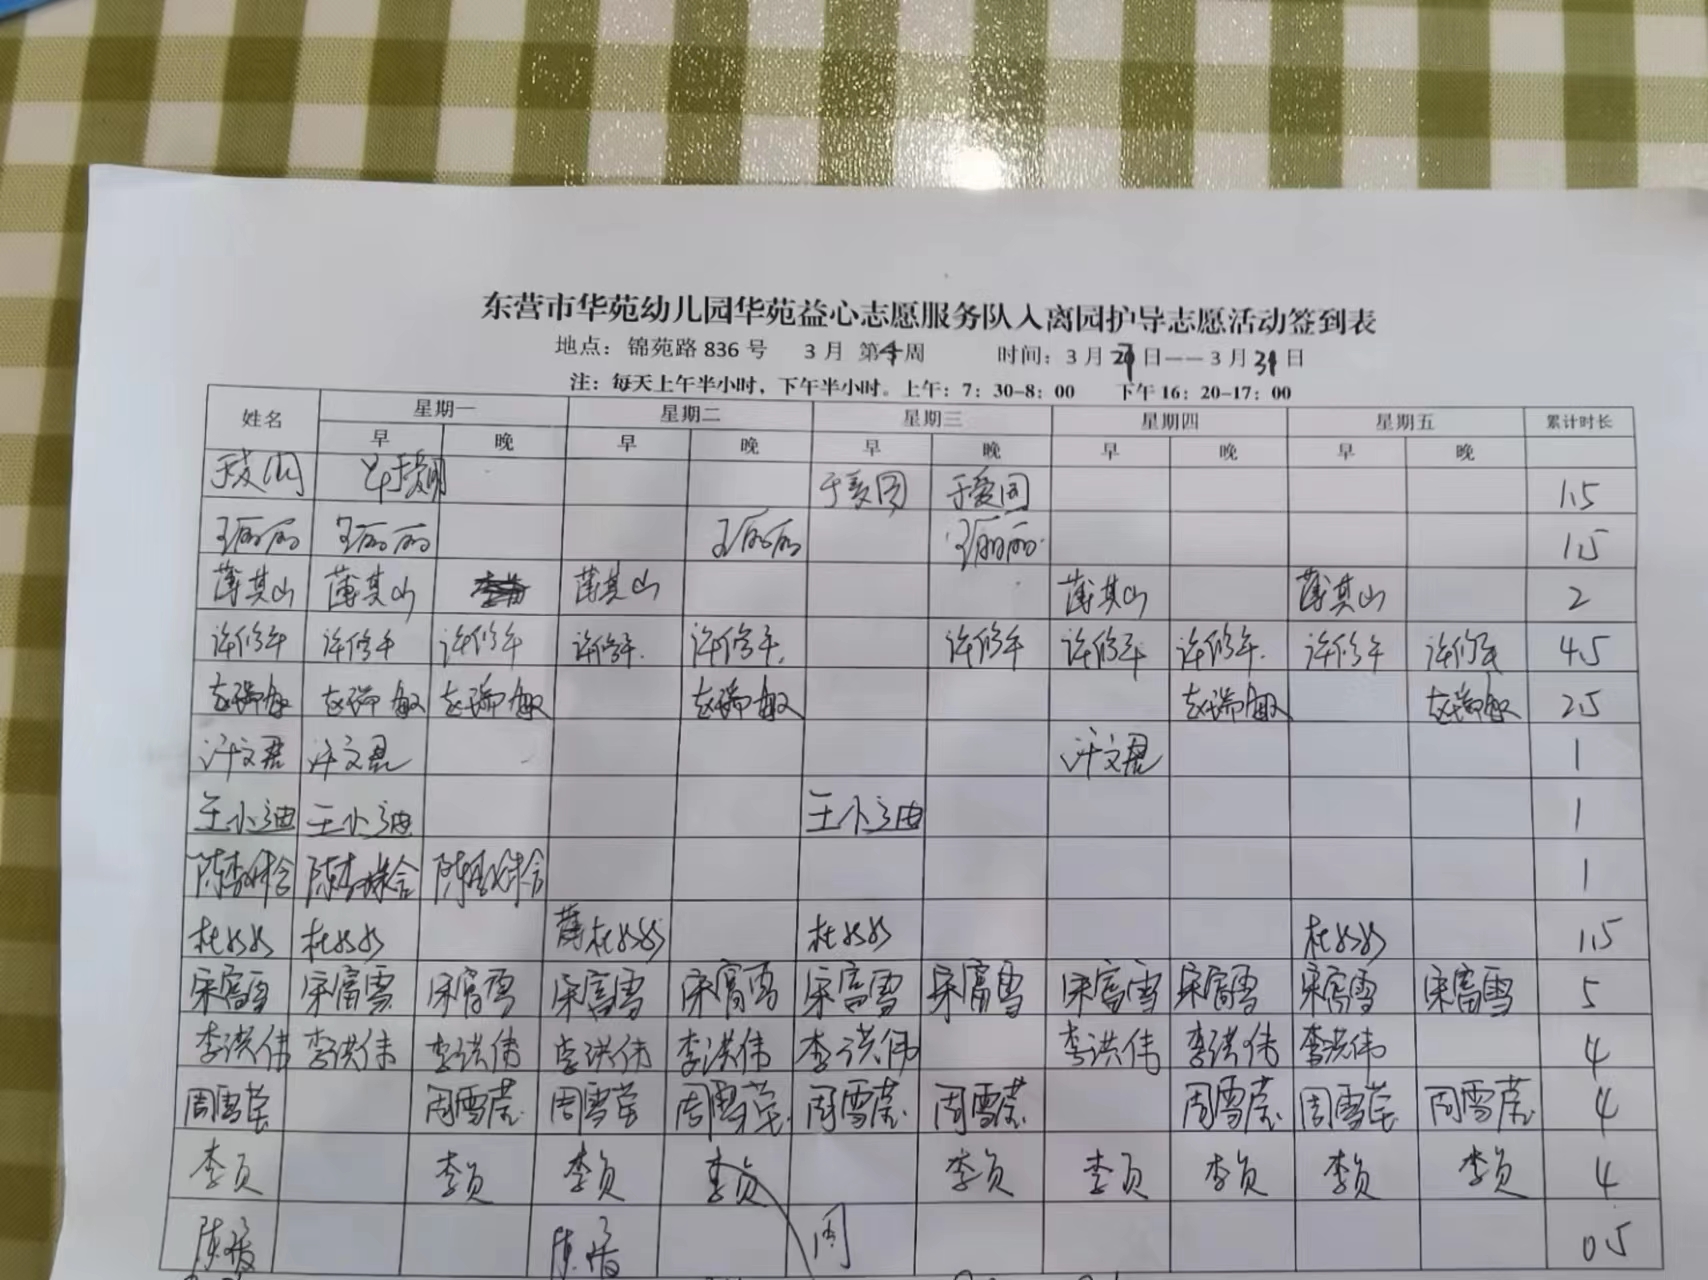 东营市华苑幼儿园华苑益心志愿服务队入离园护导志愿活动签到表
地点：锦苑路 836 号 3 月 第4周 时间：3 月 27日——3 月 31日
注：每天上午半小时，下午半小时。上午：7：30-8：00 下午 16：20-17：00
姓名 星期一 星期二 星期三 星期四 星期五 累计时长
早 晚 早 晚 早 晚 早 晚 早 晚
于爱国 于爱国 于爱国 1.5
王丽丽 王丽丽 王丽丽 王丽丽 1.5
薄其山 薄其山 薄其山 薄其山 薄其山 2
许修年 许修年 许修年 许修年 许修年 许修年 许修年 许修年 许修年 许修年 4.5
赵瑞敏 赵瑞敏 赵瑞敏 赵瑞敏 赵瑞敏 赵瑞敏 2.5
许文君 许文君 许文君 1
王小迪 王小迪 王小迪 1
陈 陈 陈 1
杜好好 杜好好 薄 杜好好 杜好好 杜好好 1.5
宋富雪 宋富雪 宋富雪 宋富雪 宋富雪 宋富雪 宋富雪 宋富雪 宋富雪 宋富雪 宋富雪 5
李洪伟 李洪伟 李洪伟 李洪伟 李洪伟 李洪伟 李洪伟 李洪伟 李洪伟 4
周雪莹 周雪莹 周雪莹 周雪莹 周雪莹 周雪莹 周雪莹 周雪莹 周雪莹 4
李贞 李贞 李贞 李贞 李贞 李贞 李贞 李贞 李贞 4
陈 陈 周 0.5